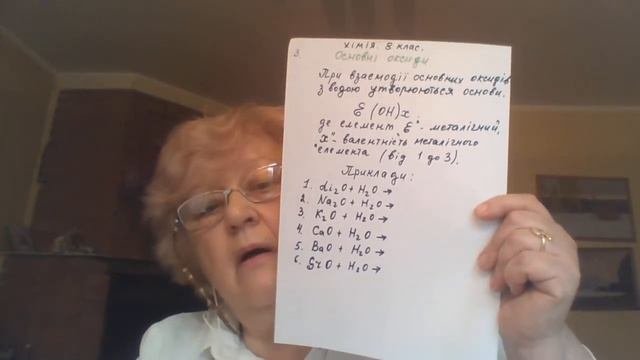 Хімія. 8 клас.
3. Основні оксиди
При взаємодії основних оксидів
з водою утворюються основи.
E (OH)x ;
де елемент "E" - металічний,
"x" - валентність металічного
елемента (від 1 до 3).
Приклади:
1. Li₂O + H₂O →
2. Na₂O + H₂O →
3. K₂O + H₂O →
4. CaO + H₂O →
5. BaO + H₂O →
6. SrO + H₂O →